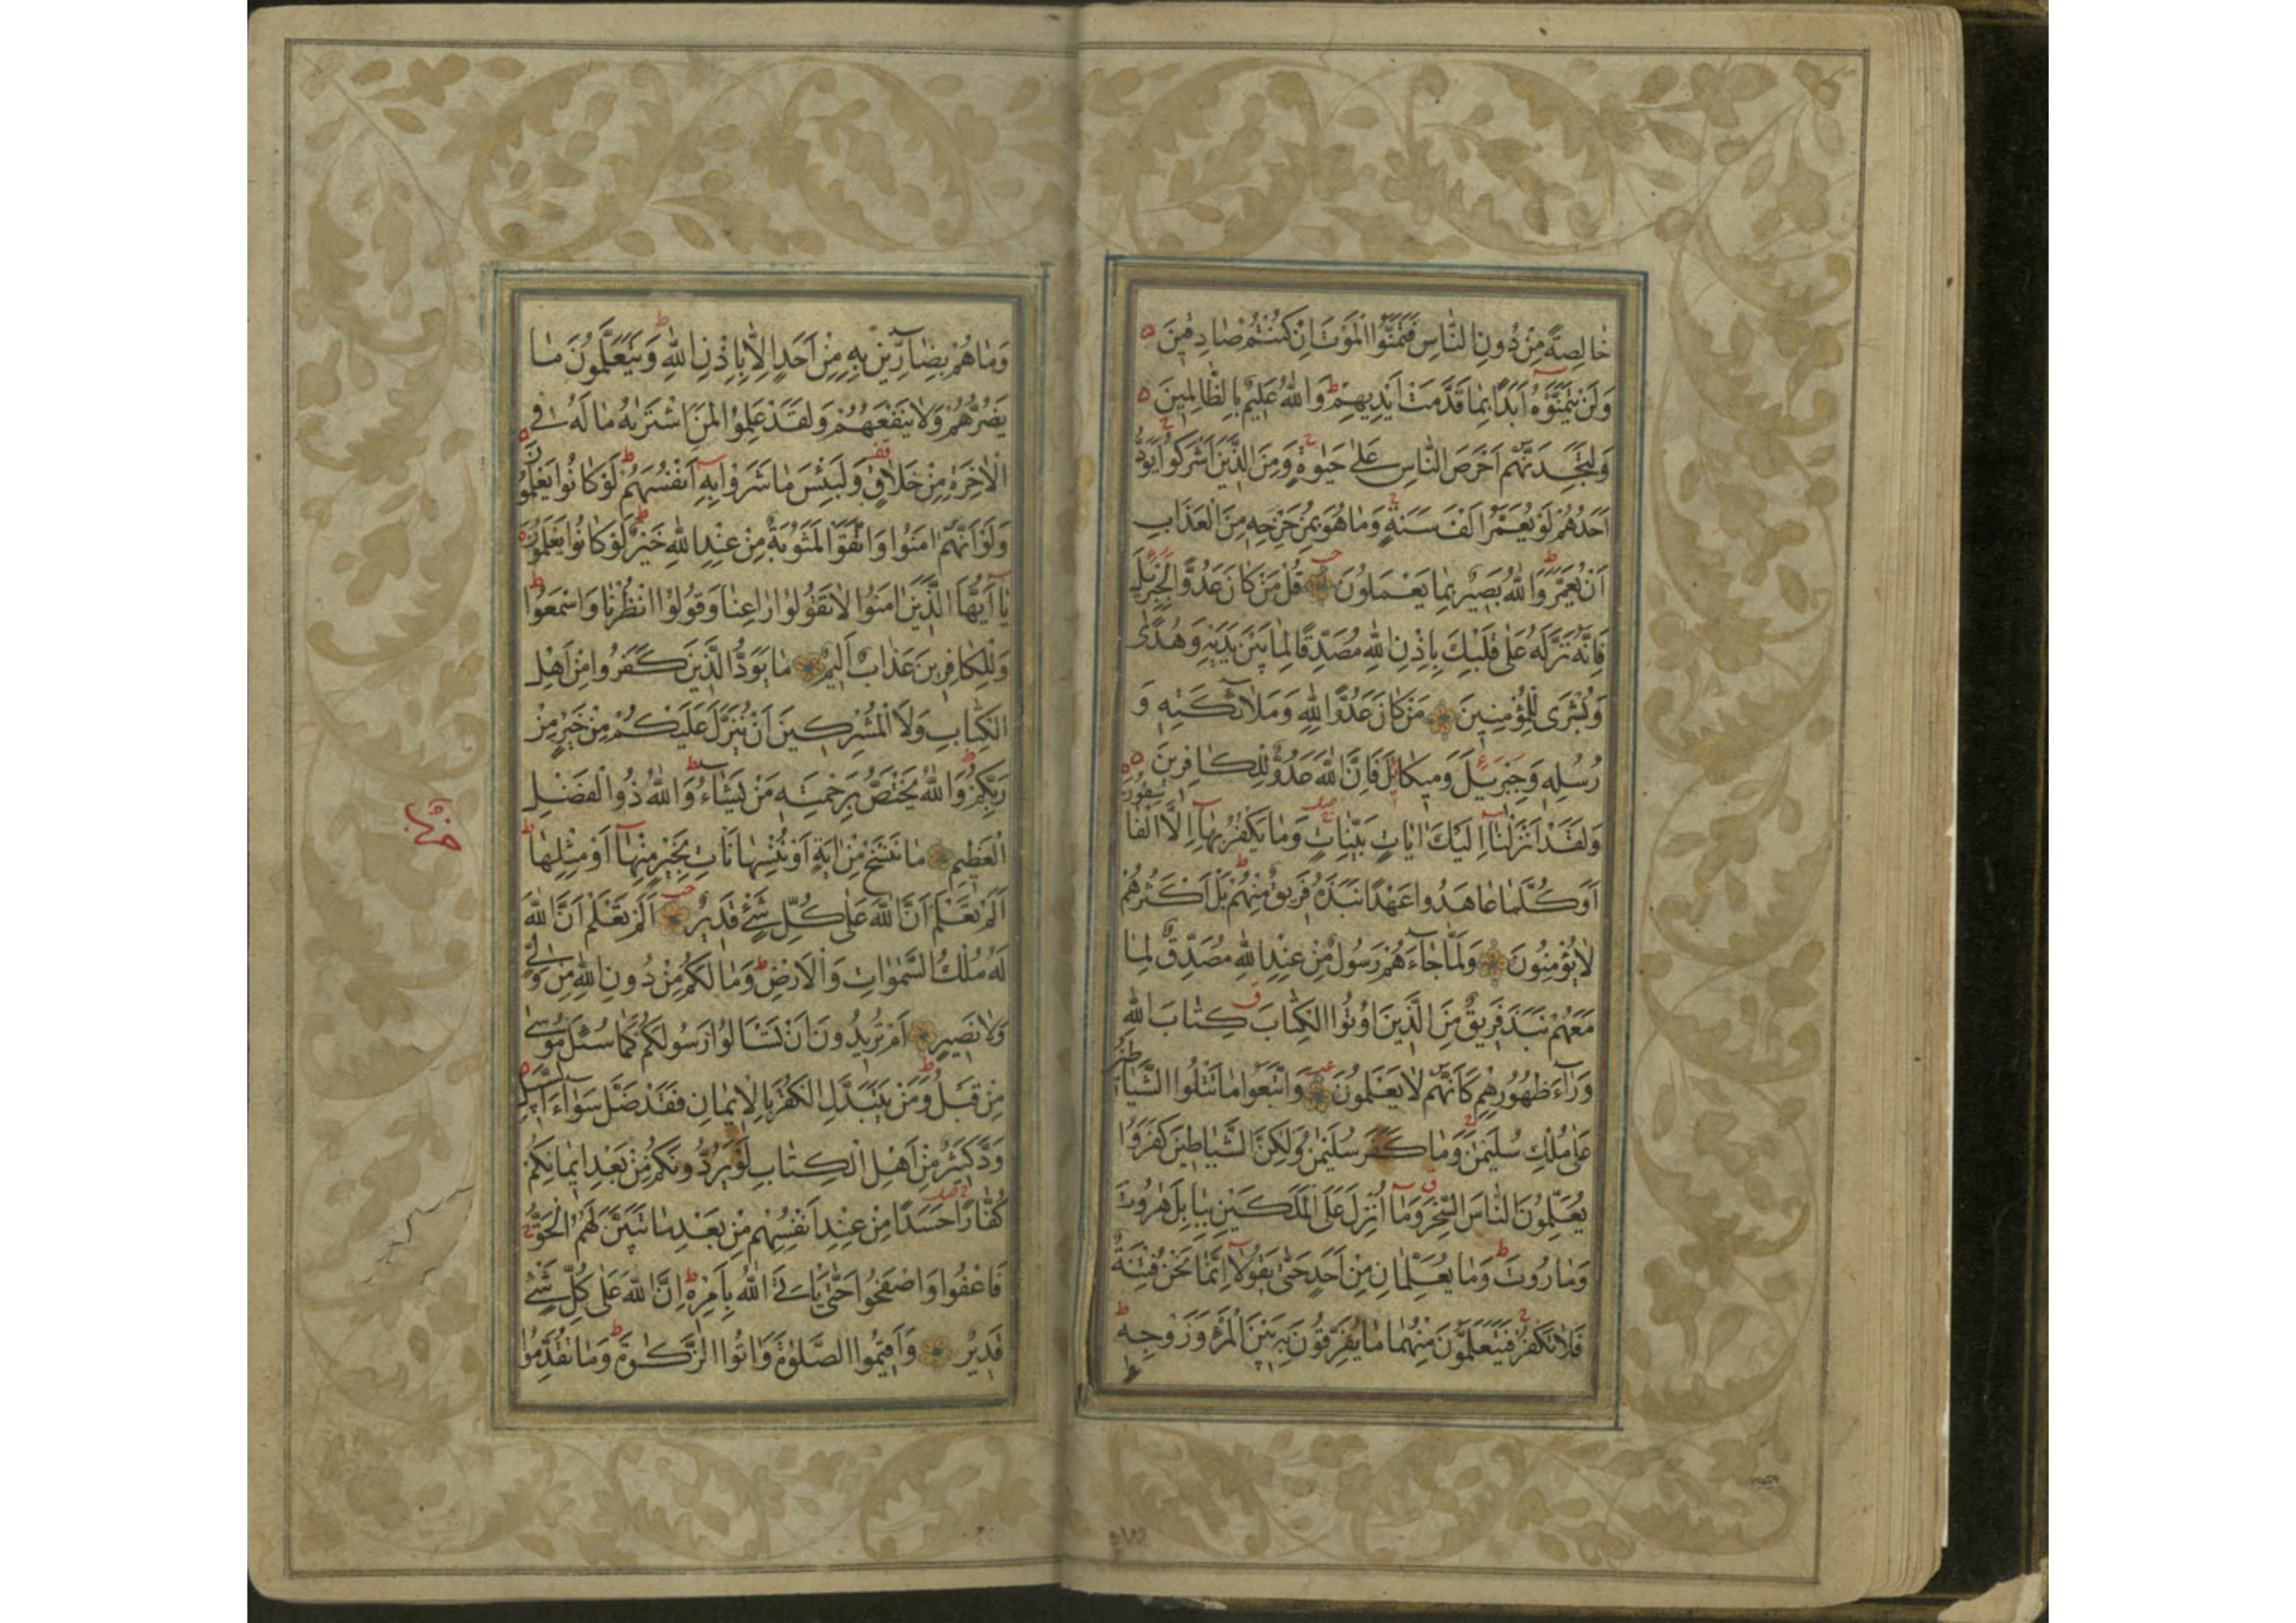 خَالِصَةً مِنْ دُونِ النَّاسِ فَتَمَنَّوُا الْمَوْتَ اِنْ كُنْتُمْ صَادِقِينَ
وَلَنْ يَتَمَنَّوْهُ اَبَدًا بِمَا قَدَّمَتْ اَيْدِيهِمْ وَاللّٰهُ عَلِيمٌ بِالظَّالِمِينَ
وَلَتَجِدَنَّهُمْ اَحْرَصَ النَّاسِ عَلٰى حَيٰوةٍ وَمِنَ الَّذِينَ اَشْرَكُوا يَوَدُّ
اَحَدُهُمْ لَوْ يُعَمَّرُ اَلْفَ سَنَةٍ وَمَا هُوَ بِمُزَحْزِحِهِ مِنَ الْعَذَابِ
اَنْ يُعَمَّرَ وَاللّٰهُ بَصِيرٌ بِمَا يَعْمَلُونَ قُلْ مَنْ كَانَ عَدُوًّا لِجِبْرِيلَ
فَاِنَّهُ نَزَّلَهُ عَلٰى قَلْبِكَ بِاِذْنِ اللّٰهِ مُصَدِّقًا لِمَا بَيْنَ يَدَيْهِ وَهُدًى
وَبُشْرٰى لِلْمُؤْمِنِينَ مَنْ كَانَ عَدُوًّا لِلّٰهِ وَمَلٰٓائِكَتِهِ وَ
رُسُلِهِ وَجِبْرِيلَ وَمِيكَائِلَ فَاِنَّ اللّٰهَ عَدُوٌّ لِلْكَافِرِينَ
وَلَقَدْ اَنْزَلْنَآ اِلَيْكَ اٰيَاتٍ بَيِّنَاتٍ وَمَا يَكْفُرُ بِهَآ اِلَّا الْفَاسِقُونَ
اَوَكُلَّمَا عَاهَدُوا عَهْدًا نَبَذَهُ فَرِيقٌ مِنْهُمْ بَلْ اَكْثَرُهُمْ
لَا يُؤْمِنُونَ وَلَمَّا جَآءَهُمْ رَسُولٌ مِنْ عِنْدِ اللّٰهِ مُصَدِّقٌ لِمَا
مَعَهُمْ نَبَذَ فَرِيقٌ مِنَ الَّذِينَ اُوتُوا الْكِتَابَ كِتَابَ اللّٰهِ
وَرَآءَ ظُهُورِهِمْ كَاَنَّهُمْ لَا يَعْلَمُونَ وَاتَّبَعُوا مَا تَتْلُوا الشَّيَاطِينُ
عَلٰى مُلْكِ سُلَيْمٰنَ وَمَا كَفَرَ سُلَيْمٰنُ وَلٰكِنَّ الشَّيَاطِينَ كَفَرُوا
يُعَلِّمُونَ النَّاسَ السِّحْرَ وَمَآ اُنْزِلَ عَلَى الْمَلَكَيْنِ بِبَابِلَ هٰرُوتَ
وَمَارُوتَ وَمَا يُعَلِّمَانِ مِنْ اَحَدٍ حَتّٰى يَقُولَآ اِنَّمَا نَحْنُ فِتْنَةٌ
فَلَا تَكْفُرْ فَيَتَعَلَّمُونَ مِنْهُمَا مَا يُفَرِّقُونَ بِهِ بَيْنَ الْمَرْءِ وَزَوْجِهِ
وَمَا هُمْ بِضَآرِّينَ بِهِ مِنْ اَحَدٍ اِلَّا بِاِذْنِ اللّٰهِ وَيَتَعَلَّمُونَ مَا
يَضُرُّهُمْ وَلَا يَنْفَعُهُمْ وَلَقَدْ عَلِمُوا لَمَنِ اشْتَرٰيهُ مَا لَهُ فِى
الْاٰخِرَةِ مِنْ خَلَاقٍ وَلَبِئْسَ مَا شَرَوْا بِهِ اَنْفُسَهُمْ لَوْ كَانُوا يَعْلَمُونَ
وَلَوْ اَنَّهُمْ اٰمَنُوا وَاتَّقَوْا لَمَثُوبَةٌ مِنْ عِنْدِ اللّٰهِ خَيْرٌ لَوْ كَانُوا يَعْلَمُونَ
يَآ اَيُّهَا الَّذِينَ اٰمَنُوا لَا تَقُولُوا رَاعِنَا وَقُولُوا انْظُرْنَا وَاسْمَعُوا
وَلِلْكَافِرِينَ عَذَابٌ اَلِيمٌ مَا يَوَدُّ الَّذِينَ كَفَرُوا مِنْ اَهْلِ
الْكِتَابِ وَلَا الْمُشْرِكِينَ اَنْ يُنَزَّلَ عَلَيْكُمْ مِنْ خَيْرٍ مِنْ
رَبِّكُمْ وَاللّٰهُ يَخْتَصُّ بِرَحْمَتِهِ مَنْ يَشَآءُ وَاللّٰهُ ذُوا الْفَضْلِ
الْعَظِيمِ مَا نَنْسَخْ مِنْ اٰيَةٍ اَوْ نُنْسِهَا نَاْتِ بِخَيْرٍ مِنْهَآ اَوْ مِثْلِهَا
اَلَمْ تَعْلَمْ اَنَّ اللّٰهَ عَلٰى كُلِّ شَىْءٍ قَدِيرٌ اَلَمْ تَعْلَمْ اَنَّ اللّٰهَ
لَهُ مُلْكُ السَّمٰوَاتِ وَالْاَرْضِ وَمَا لَكُمْ مِنْ دُونِ اللّٰهِ مِنْ وَلِىٍّ
وَلَا نَصِيرٍ اَمْ تُرِيدُونَ اَنْ تَسْـَٔالُوا رَسُولَكُمْ كَمَا سُئِلَ مُوسٰى
مِنْ قَبْلُ وَمَنْ يَتَبَدَّلِ الْكُفْرَ بِالْاِيمَانِ فَقَدْ ضَلَّ سَوَآءَ السَّبِيلِ
وَدَّ كَثِيرٌ مِنْ اَهْلِ الْكِتَابِ لَوْ يَرُدُّونَكُمْ مِنْ بَعْدِ اِيمَانِكُمْ
كُفَّارًا حَسَدًا مِنْ عِنْدِ اَنْفُسِهِمْ مِنْ بَعْدِ مَا تَبَيَّنَ لَهُمُ الْحَقُّ
فَاعْفُوا وَاصْفَحُوا حَتّٰى يَاْتِىَ اللّٰهُ بِاَمْرِهِ اِنَّ اللّٰهَ عَلٰى كُلِّ شَىْءٍ
قَدِيرٌ وَاَقِيمُوا الصَّلٰوةَ وَاٰتُوا الزَّكٰوةَ وَمَا تُقَدِّمُوا